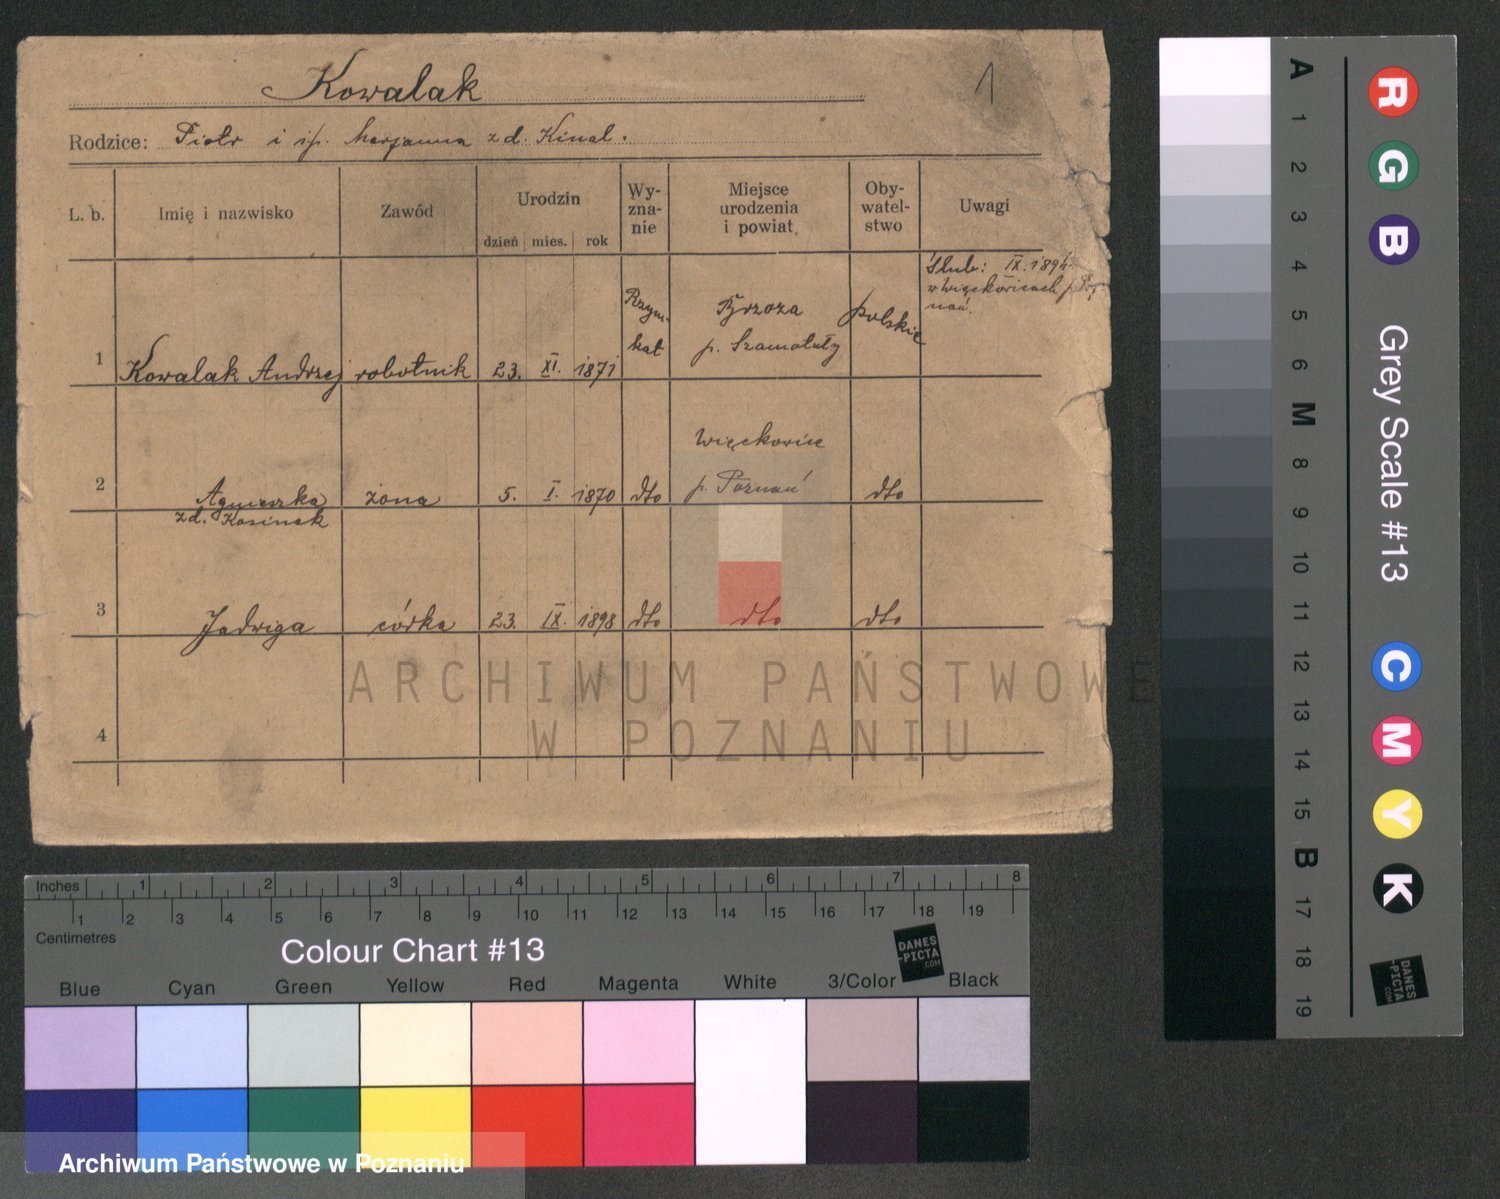 Kowalak
1
Rodzice: Piotr i śp. Marjanna z d. Kinal.
L. b. Imię i nazwisko Zawód Urodzin dzień mies. rok Wy-znanie Miejsce urodzenia i powiat. Oby-watel-stwo Uwagi
Ślub: IX. 1894
w Więckowicach p. Poz
nań.
1 Kowalak Andrzej robotnik 23. XI. 1871 Rzym. kat Brzoza p. Szamotuły polskie
2 Agnieszka z d. Kosinak żona 5. I. 1870 dto Więckowice p. Poznań dto
3 Jadwiga córka 23. IX. 1898 dto dto dto
ARCHIWUM PAŃSTWOWE
W POZNANIU
4
Inches 1 2 3 4 5 6 7 8
1 2 3 4 5 6 7 8 9 10 11 12 13 14 15 16 17 18 19
Centimetres
Colour Chart #13
DANES
-PICTA
.COM
Blue Cyan Green Yellow Red Magenta White 3/Color Black
Archiwum Państwowe w Poznaniu
A 1 2 3 4 5 6 M 8 9 10 11 12 13 14 15 B 17 18 19
R G B Grey Scale #13 C M Y K
DANES
-PICTA
.COM